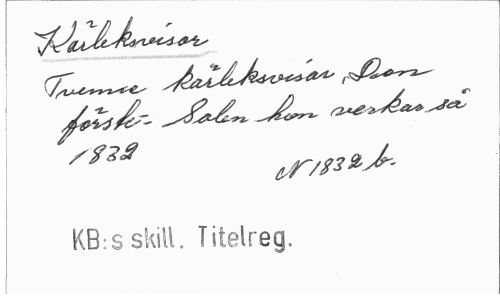 Kärleksvisor
Tvenne kärleksvisor, Den
förste: Solen hon verkar så
1832
N 1832 b.
KB:s skill. Titelreg.